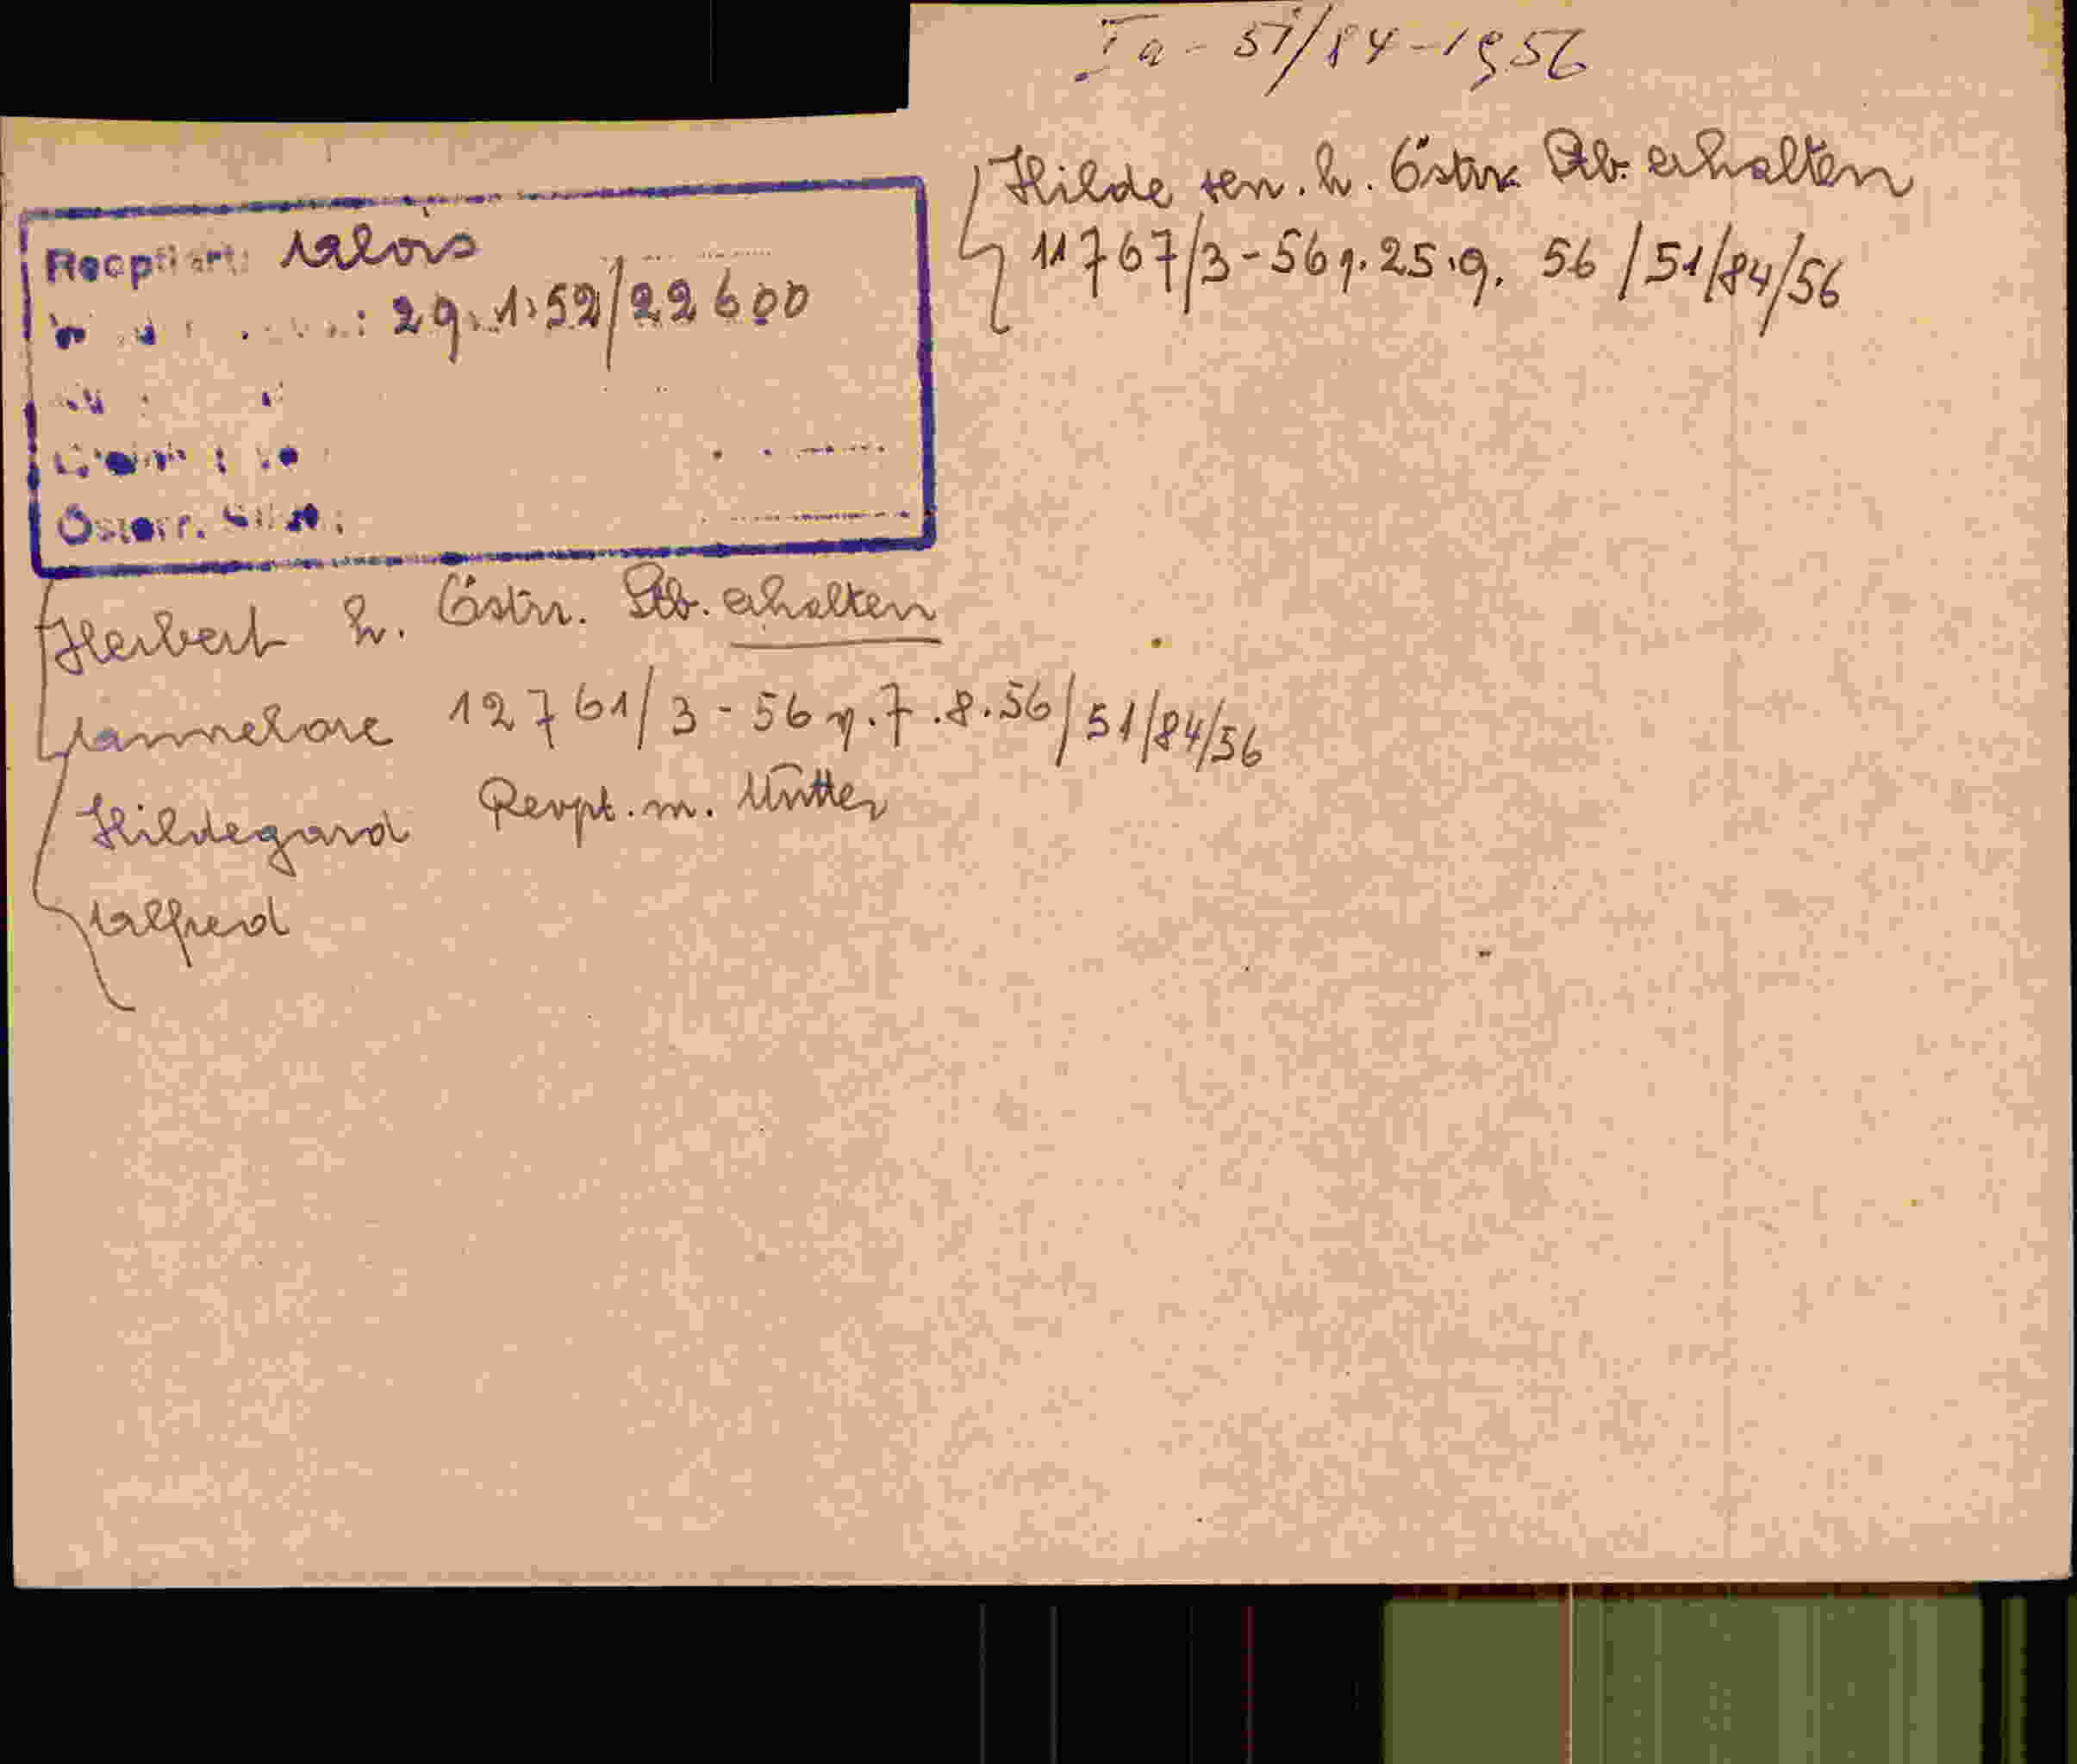 Ia - 51/84-1956
Hilde sen. h. Östrr. Stb. erhalten
11767/3-56 v. 25.9. 56/51/84/56
Reoptiert: Alois
29.1.52/22600
Österr.
Herbert h. Östrr. Stb. erhalten
Hannelore 12761/3-56 v. 7.8.56/51/84/56
Hildegard Reopt. m. Mutter
Alfred